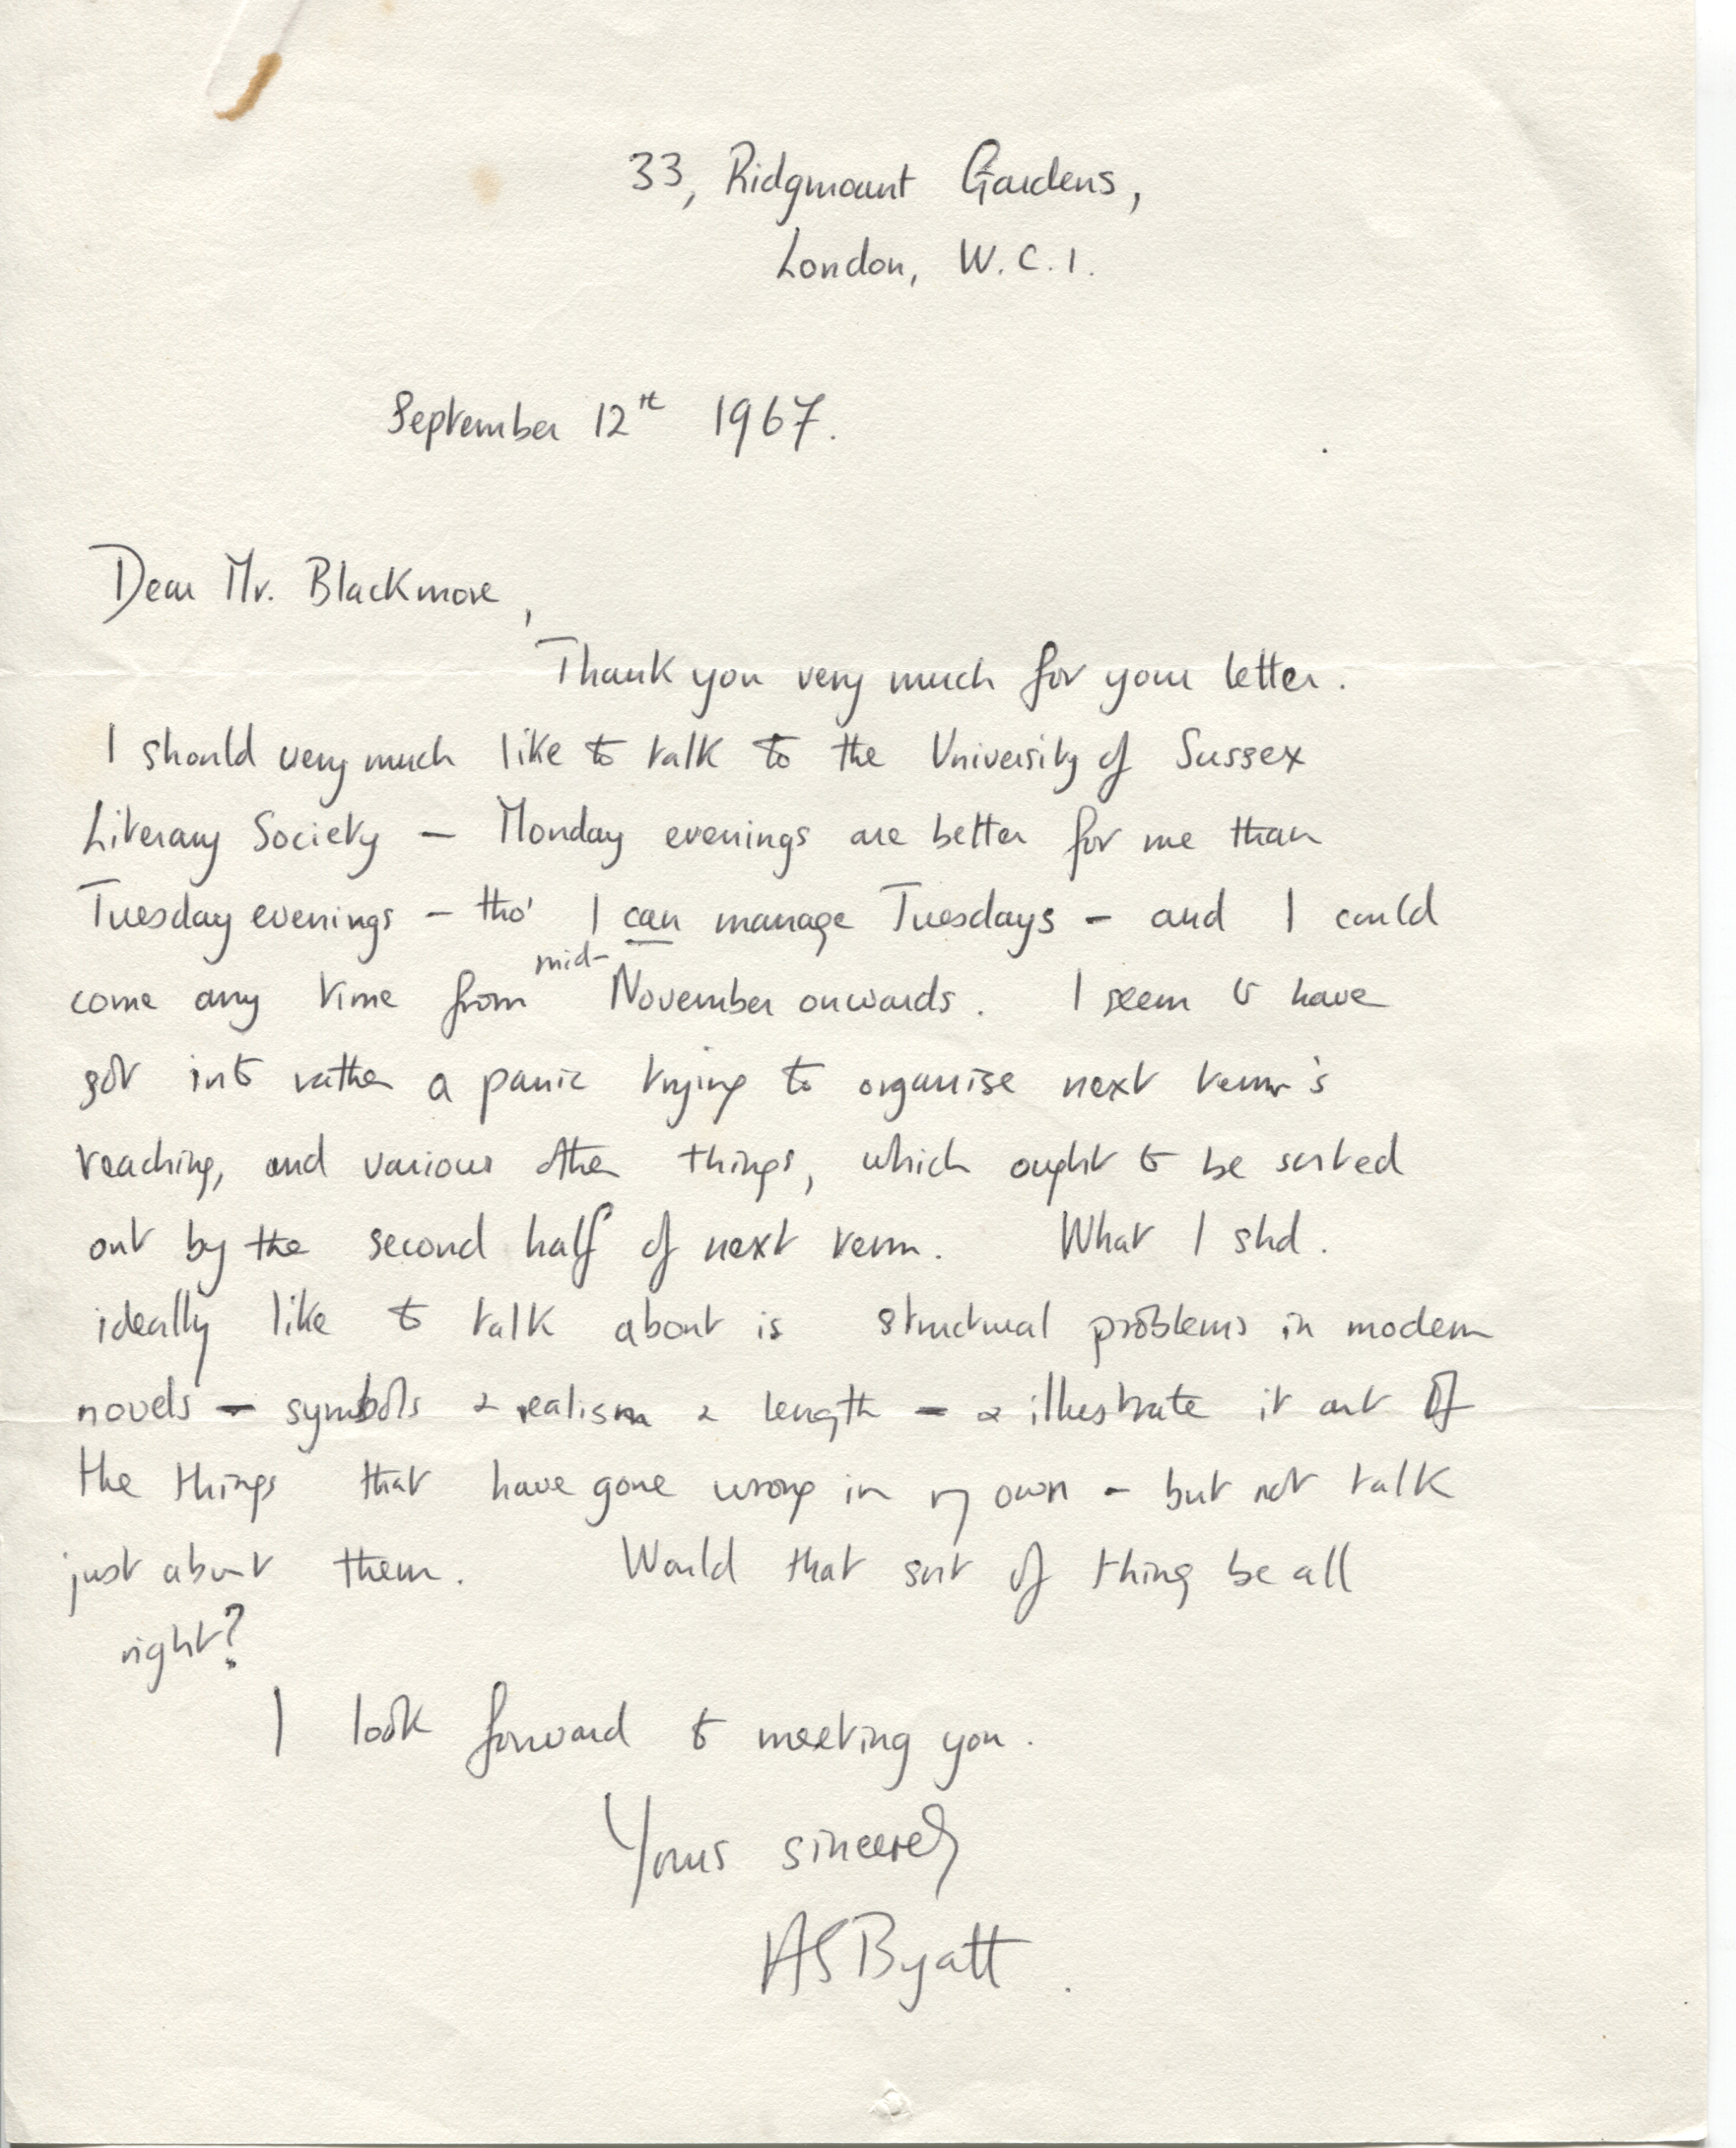 33, Ridgmount Gardens,
London, W.C.1.
September 12th 1967.
Dear Mr. Blackmore,
Thank you very much for your letter.
I should very much like to talk to the University of Sussex
Literary Society – Monday evenings are better for me than
Tuesday evenings – tho' I can manage Tuesdays – and I could
come any time from mid-November onwards. I seem to have
got into rather a panic trying to organise next term's
teaching, and various other things, which ought to be sorted
out by the second half of next term. What I shd.
ideally like to talk about is structural problems in modern
novels – symbols & realism & length – & illustrate it out of
the things that have gone wrong in my own – but not talk
just about them. Would that sort of thing be all
right?
I look forward to meeting you.
Yours sincerely
AS Byatt.